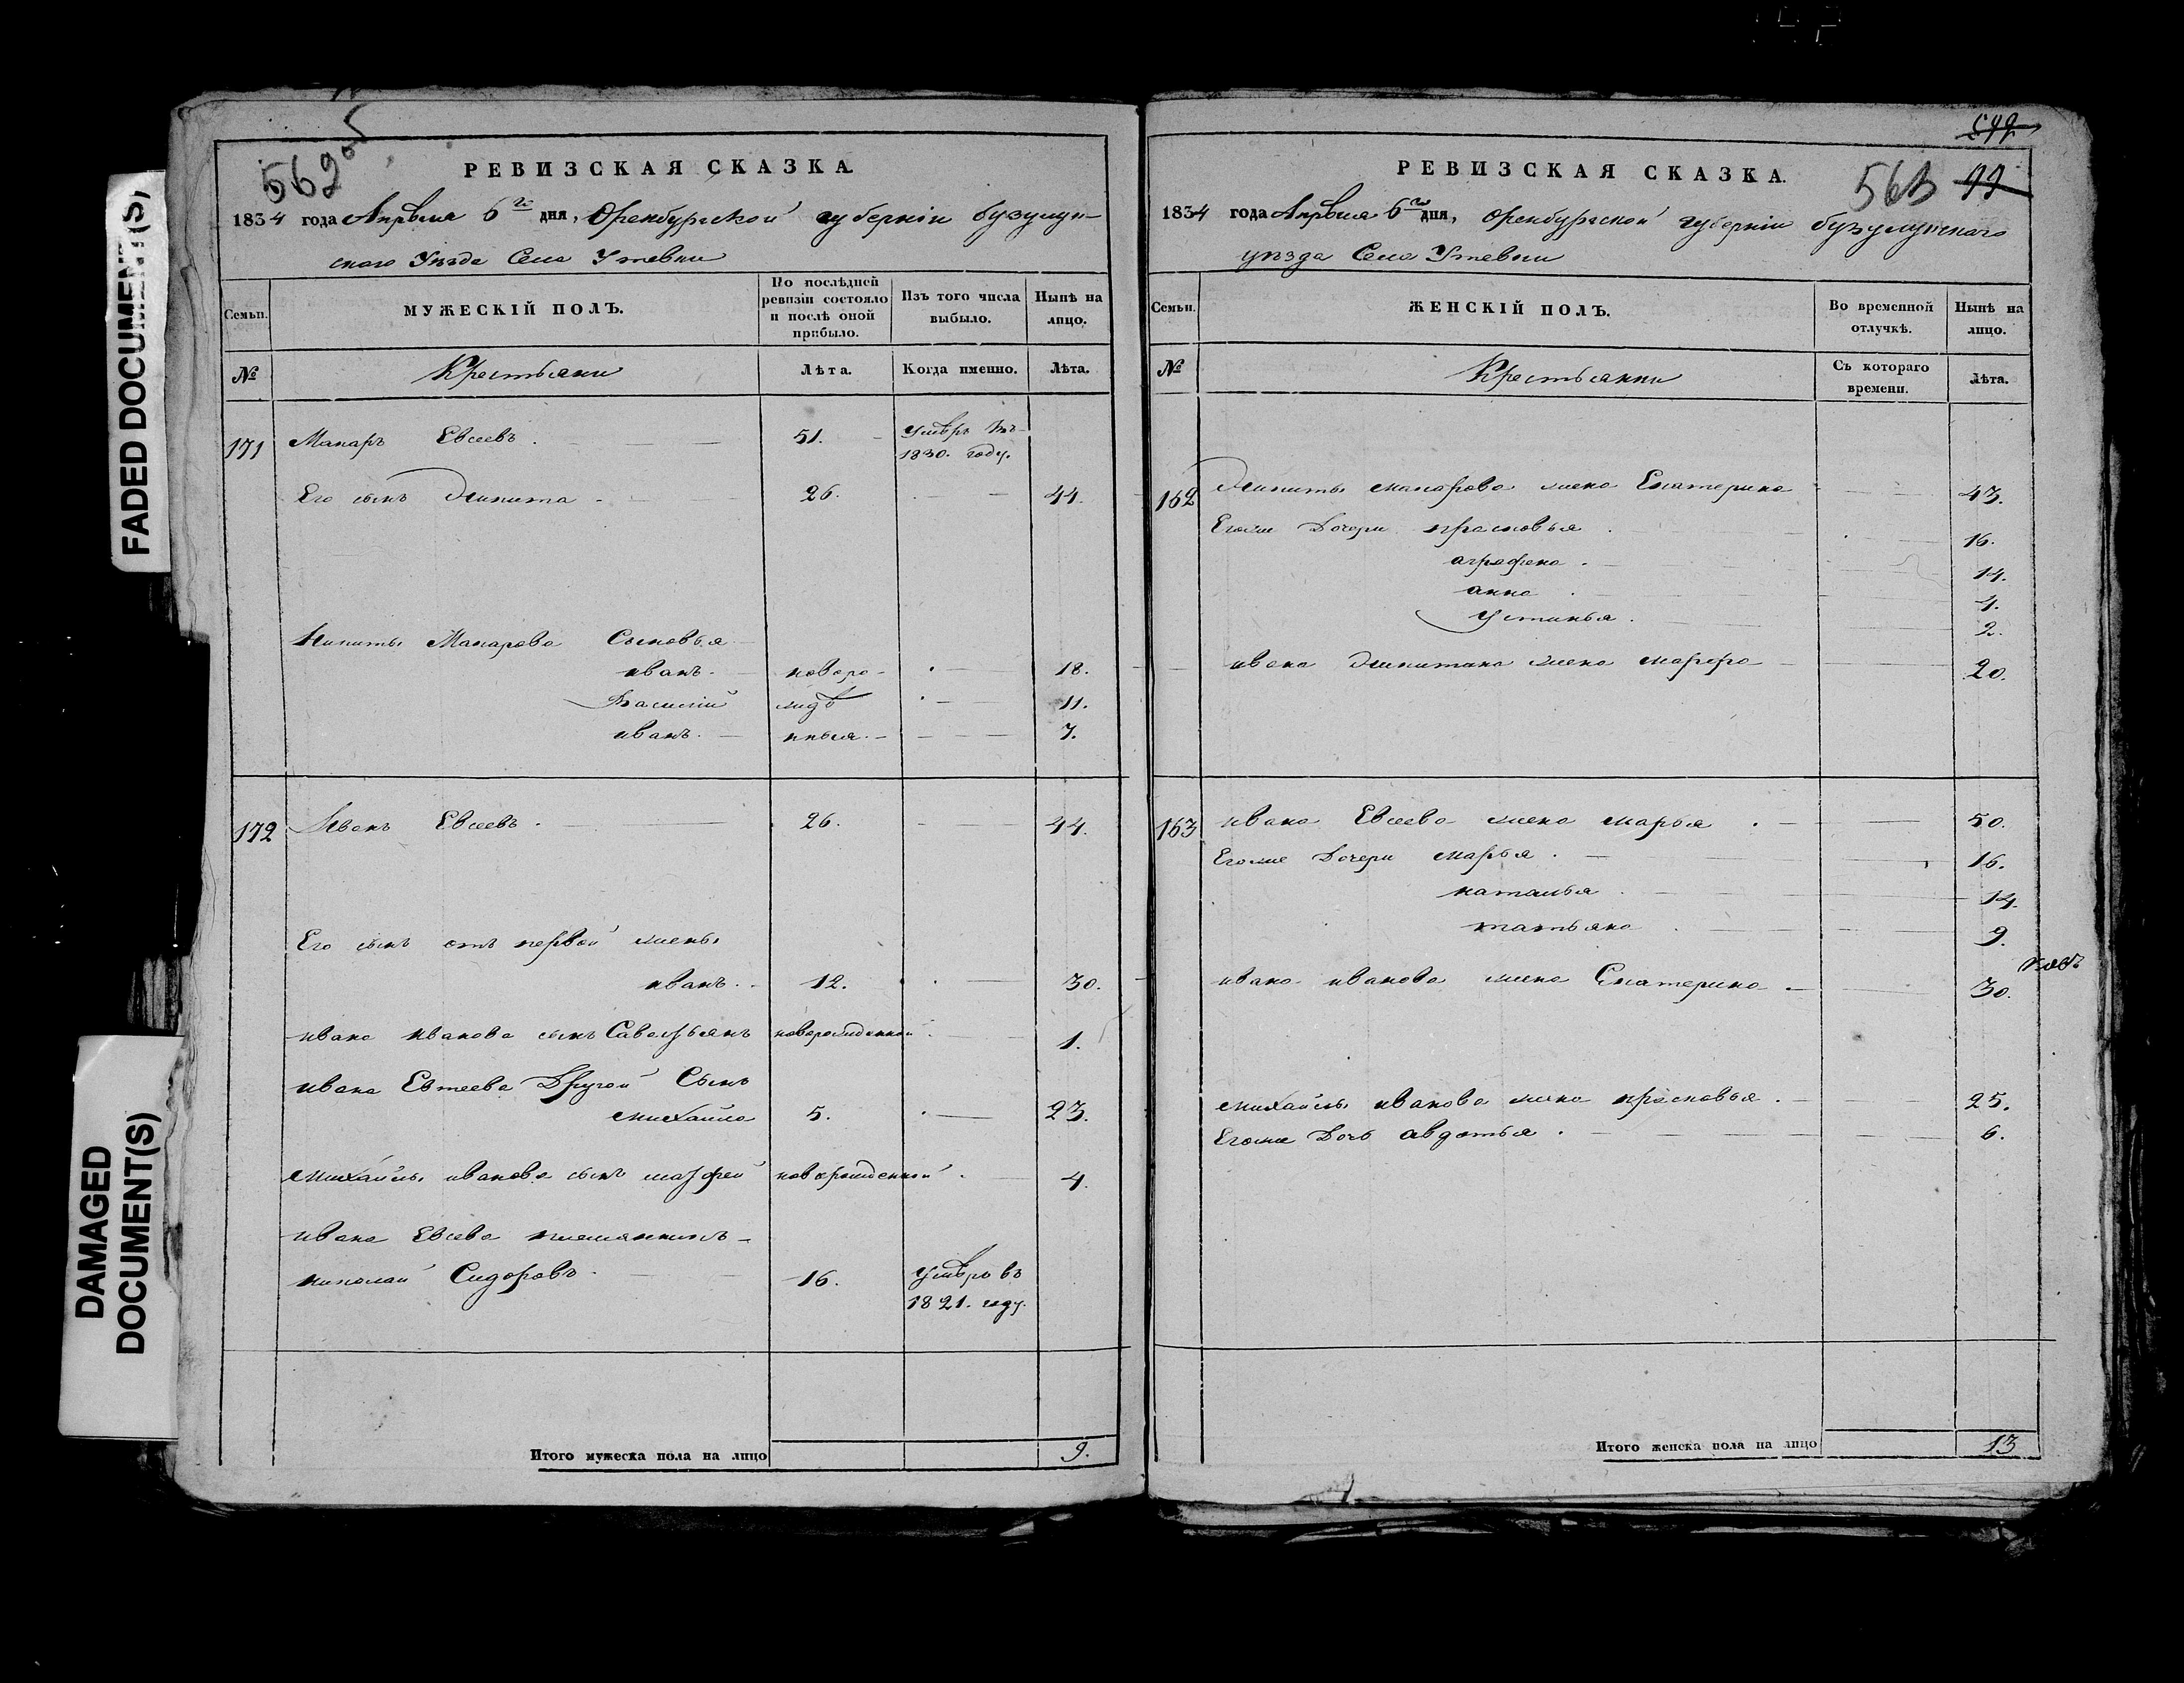 FADED DOCUMENT(S)
DAMAGED
DOCUMENT(S)
562 об
РЕВИЗСКАЯ СКАЗКА.
1834 года Апрѣля 6го дня, Оренбургской губерніи бузулук-
скаго Уѣзда Села Утевки
Семьи. МУЖЕСКІЙ ПОЛЪ. По послѣдней ревизіи состояло и послѣ оной прибыло. Изъ того числа выбыло. Нынѣ на лицо.
№ Крестьяни Лѣта. Когда именно. Лѣта.
171 Макаръ Евсеевъ. 51. Умѣръ въ
1830. году.
Его сынъ Никита 26. 44.
Никиты Макарова Сыновья
иванъ. новоро- 18.
Василій жидѣ 11.
иванъ. нныя. 7.
172 Иванъ Евсеевъ. 26. 44.
Его сынъ отъ первой жены
иванъ. 12. 30.
ивана иванова сынъ Савастьянъ новорожденной 1.
ивана Евтеева Другой Сынъ
михайла 5. 23.
михайлы иванова сынъ матфей новорожденной 4.
ивана Евсева племянникъ
николай Сидоровъ 16. Умѣръ въ
1821. году.
Итого мужеска пола на лицо 9.
РЕВИЗСКАЯ СКАЗКА.
563
1834 года Апрѣля 6го дня, Оренбургской губерніи бузулукскаго
уѣзда Села Утевки
Семьи. ЖЕНСКІЙ ПОЛЪ. Во временной отлучкѣ. Нынѣ на лицо.
№ Крестьянки Съ котораго времени. Лѣта.
162 Никиты макарова жена Екатерина 43.
Егоже Дочери прасковья 16.
аграфена. 14.
анна 4.
Устинья. 2.
ивана никитина жена марфа 20.
163 ивана Евсеева жена марья. 50.
Егоже Дочери марья. 16.
наталья 14.
татьяна 9.
ивана иванова жена Екатерина. 30.
михайлы иванова жена прасковья. 25.
Егоже Дочь авдотья. 6.
Итого женска пола на лицо 13